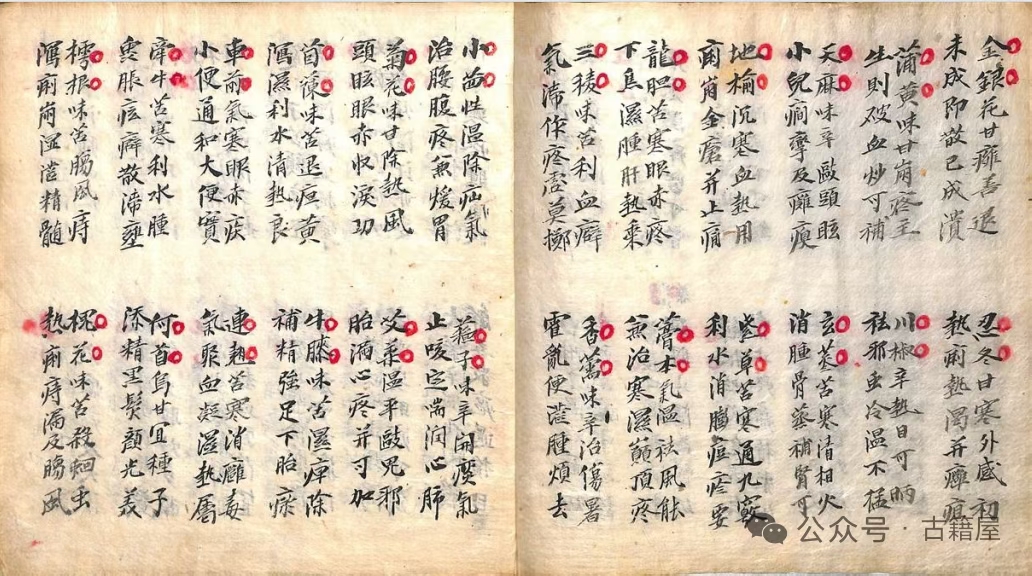 金銀花甘癰善退
未成即散已成潰
蒲黃味甘崩疼主
生則破血炒可補
天麻味辛敺頭眩
小兒癇攣及癱瘓
地榆沉寒血熱用
痢崩金瘡并止痛
龍胆苦寒眼赤疼
下焦濕腫肝熱乘
三稜味苦利血癖
氣滯作疼虛莫擲
忍冬甘寒外感初
熱痢熱渴并癉疽
川椒辛熱目可昞
祛邪虫冷溫不猛
玄參苦寒清相火
消腫骨蒸補腎可
紫草苦寒通九竅
利水消膨痘疹要
藁本氣溫祛風能
兼治寒濕巔頂疼
香薷味辛治傷暑
霍亂便澁腫煩去
小茴性溫除疝氣
治腰腹疼兼煖胃
菊花味甘除熱風
頭眩眼赤收淚功
茵蔯味苦退疸黃
瀉濕利水清熱良
車前氣寒眼赤疾
小便通和大便實
牽牛苦寒利水腫
蠱脹痃癖散滯壅
樗根味苦腸風痔
瀉痢崩湿澁精髓
蘓子味辛開痰氣
止咳定喘潤心肺
艾葉溫平敺鬼邪
胎漏心疼并可加
牛膝味苦濕痺除
補精強足下胎瘀
連翹苦寒消癰毒
氣聚血凝濕熱屬
何首烏甘宜種子
添精黑髮顏光美
槐花味苦殺蛔虫
熱痢痔漏及腸風
公众号 · 古籍屋